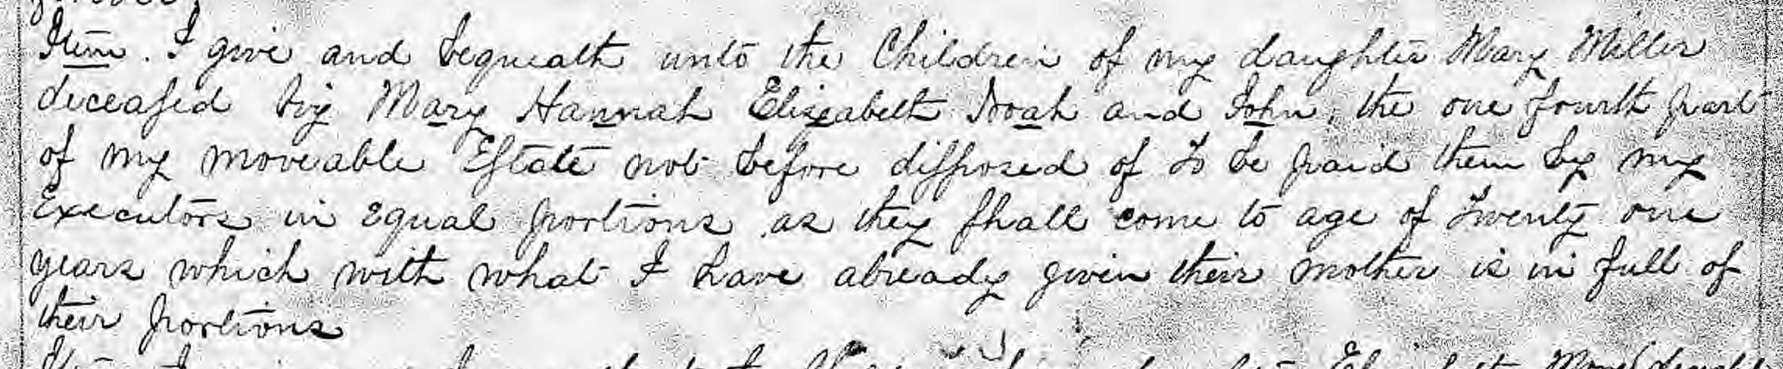 Item. I give and bequeath unto the Children of my daughter Mary Miller
deceased viz Mary Hannah Elizabeth Noah and John, the one fourth part
of my moveable Estate not before disposed of to be paid them by my
Executors in equal portions as they shall come to age of Twenty one
years which with what I have already given their mother is in full of
their portions